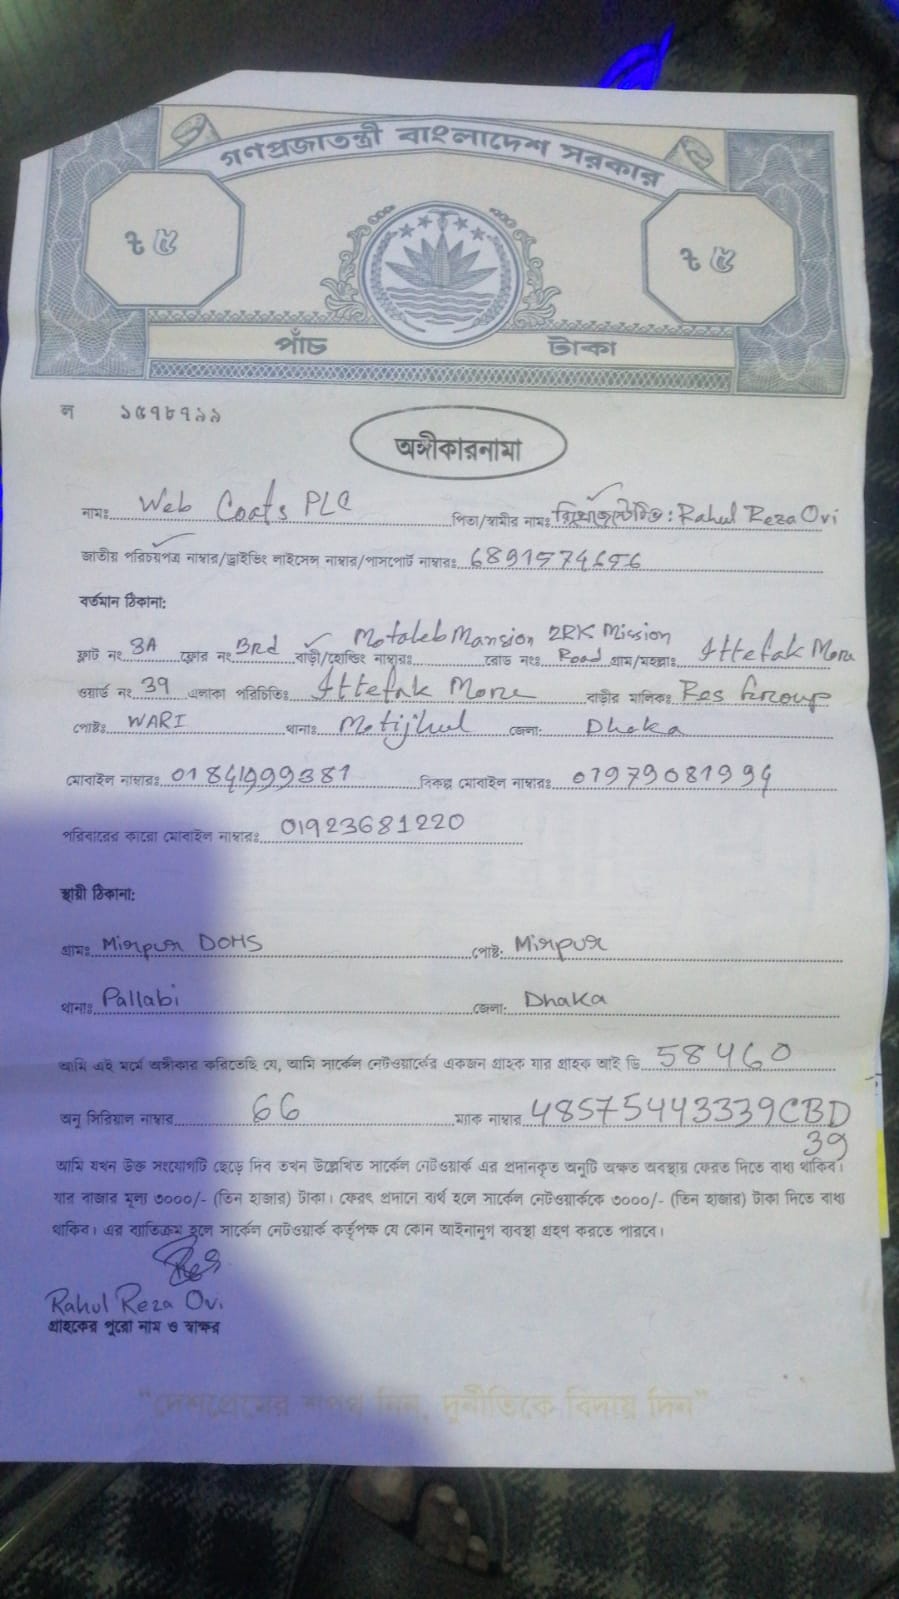 গণপ্রজাতন্ত্রী বাংলাদেশ সরকার
৳ ৫ ৳ ৫
পাঁচ টাকা
ল ১৫৭৮৭৯৯
অঙ্গীকারনামা
নামঃ Web Coats PLC পিতা/স্বামীর নামঃ রিপ্রেজেন্টেটিভ: Rahul Reza Ovi
জাতীয় পরিচয়পত্র নাম্বার/ড্রাইভিং লাইসেন্স নাম্বার/পাসপোর্ট নাম্বারঃ 6891574656
বর্তমান ঠিকানা:
ফ্লাট নং 3A ফ্লোর নং 3rd বাড়ী/হোল্ডিং নাম্বারঃ Motaleb Mansion রোড নংঃ 2RK Mission Road গ্রাম/মহল্লাঃ Ittefak More
ওয়ার্ড নং 39 এলাকা পরিচিতিঃ Ittefak More বাড়ীর মালিকঃ Res Group
পোষ্টঃ WARI থানাঃ Motijhul জেলা: Dhaka
মোবাইল নাম্বারঃ 01841999381 বিকল্প মোবাইল নাম্বারঃ 01979081994
পরিবারের কারো মোবাইল নাম্বারঃ 01923681220
স্থায়ী ঠিকানা:
গ্রামঃ Mirpur DOHS পোষ্ট: Mirpur
থানাঃ Pallabi জেলা: Dhaka
আমি এই মর্মে অঙ্গীকার করিতেছি যে, আমি সার্কেল নেটওয়ার্কের একজন গ্রাহক যার গ্রাহক আই ডি 58460
অনু সিরিয়াল নাম্বার 66 ম্যাক নাম্বার 48575443339CBD
39
আমি যখন উক্ত সংযোগটি ছেড়ে দিব তখন উল্লেখিত সার্কেল নেটওয়ার্ক এর প্রদানকৃত অনুটি অক্ষত অবস্থায় ফেরত দিতে বাধ্য থাকিব।
যার বাজার মূল্য ৩০০০/- (তিন হাজার) টাকা। ফেরৎ প্রদানে ব্যর্থ হলে সার্কেল নেটওয়ার্ককে ৩০০০/- (তিন হাজার) টাকা দিতে বাধ্য
থাকিব। এর ব্যতিক্রম হলে সার্কেল নেটওয়ার্ক কর্তৃপক্ষ যে কোন আইনানুগ ব্যবস্থা গ্রহণ করতে পারবে।
Rahul Reza Ovi
গ্রাহকের পুরো নাম ও স্বাক্ষর
"দেশপ্রেমের শপথ নিন, দুর্নীতিকে বিদায় দিন"